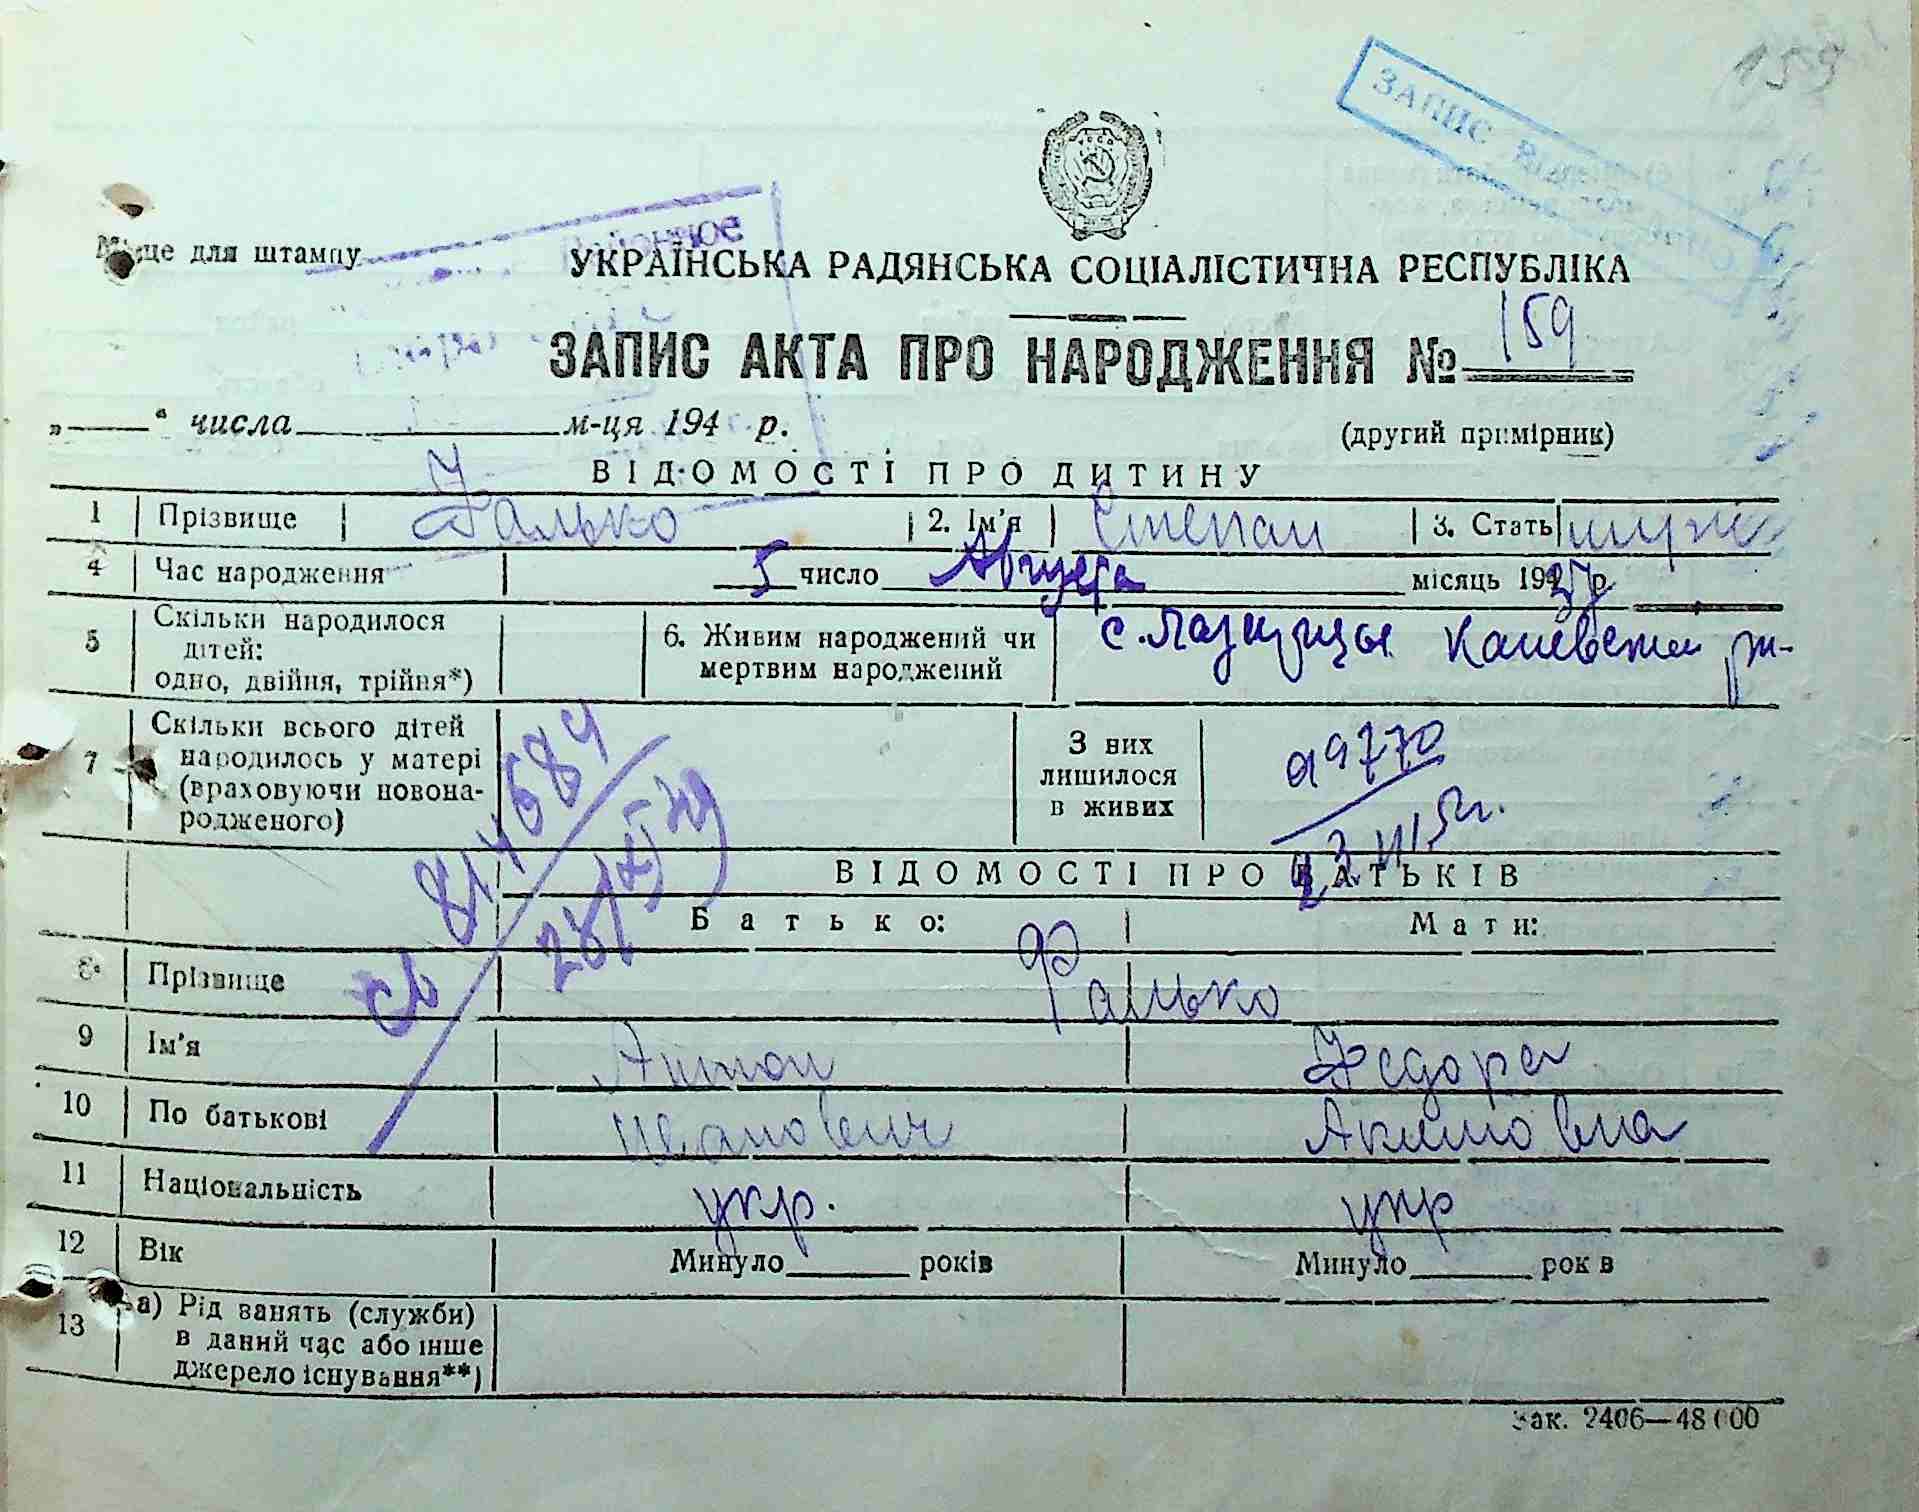 159
ЗАПИС
Місце для штампу
УКРАЇНСЬКА РАДЯНСЬКА СОЦІАЛІСТИЧНА РЕСПУБЛІКА
ЗАПИС АКТА ПРО НАРОДЖЕННЯ № 159
„ “ числа м-ця 194 р.
(другий примірник)
ВІДОМОСТІ ПРО ДИТИНУ
1 Прізвище Фалько 2. Ім'я Степан 3. Стать муж
4 Час народження 5 число Августа місяць 1937 р
5 Скільки народилося дітей: одно, двійня, трійня*) 6. Живим народжений чи мертвим народжений с. Лазирцы Каневский р-
7 Скільки всього дітей народилось у матері (враховуючи новонародженого) З них лишилося в живих
а 9770
св 814684
ВІДОМОСТІ ПРО БАТЬКІВ
Батько: Мати:
8 Прізвище Фалько
9 Ім'я Антон Федора
10 По батькові Иванович Акимовна
11 Національність укр. укр
12 Вік Минуло років Минуло рок в
13 а) Рід занять (служби) в даний час або інше джерело існування**)
Зак. 2406—48000